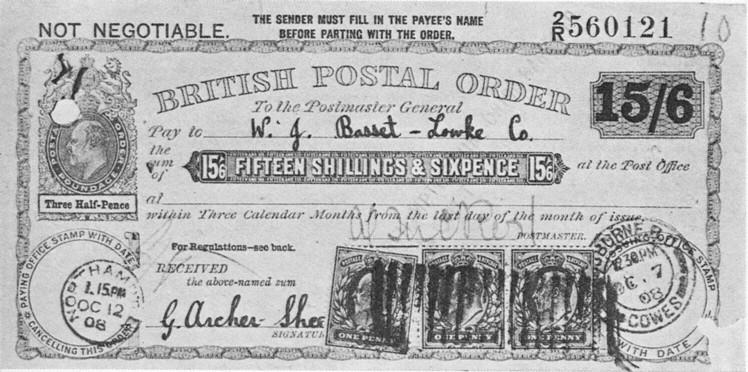 NOT NEGOTIABLE.
THE SENDER MUST FILL IN THE PAYEE'S NAME
BEFORE PARTING WITH THE ORDER.
2/R 560121
10
BRITISH POSTAL ORDER
15/6
To the Postmaster General
Pay to W. J. Basset-Lowke Co.
the sum of 15/6 FIFTEEN SHILLINGS & SIXPENCE 15/6 at the Post Office
at
within Three Calendar Months from the last day of the month of issue.
POSTMASTER.
POSTAL ORDER
POUNDAGE
Three Half-Pence
For Regulations—see back.
RECEIVED
the above-named sum
G. Archer
SIGNATUR
PAYING OFFICE STAMP WITH DATE
CANCELLING THIS ORDER
1.15PM
OC 12
08
POSTAGE
ONE PENNY
ONE PENNY
ONE PENNY
STAMP
WITH DATE
12.30PM
OC 7
08
COWES